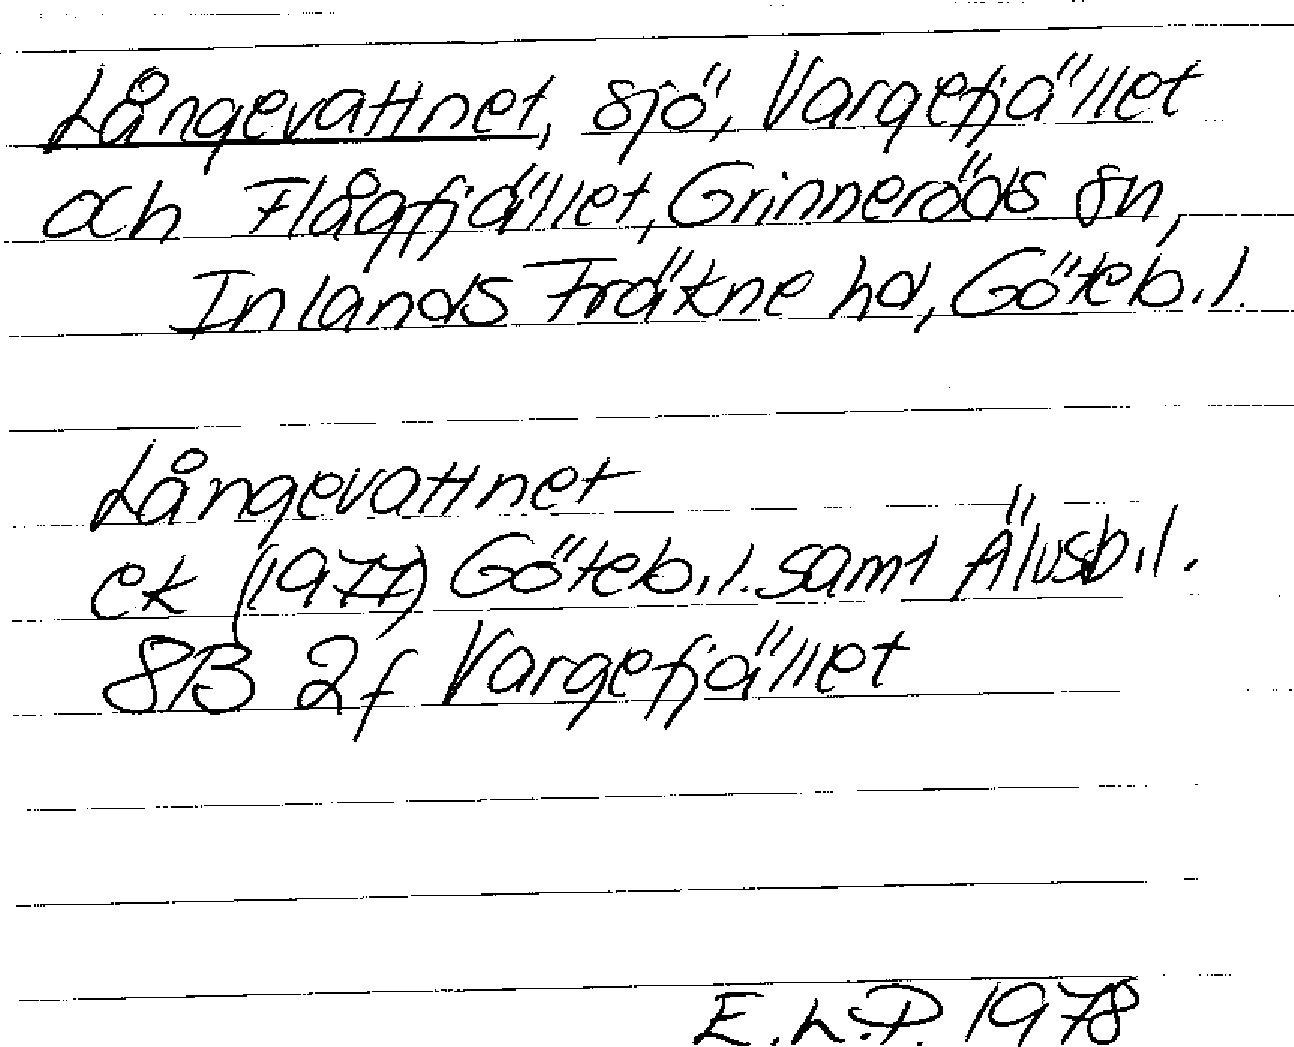 Långevattnet, sjö, Vargefjället
och Flågfjället, Grinneröds sn,
Inlands Fräkne hd, Göteb.l.
Långevattnet
ek (1977) Göteb.l. samt Älvsb.l.
8B 2f Vargefjället
E.L.P. 1978